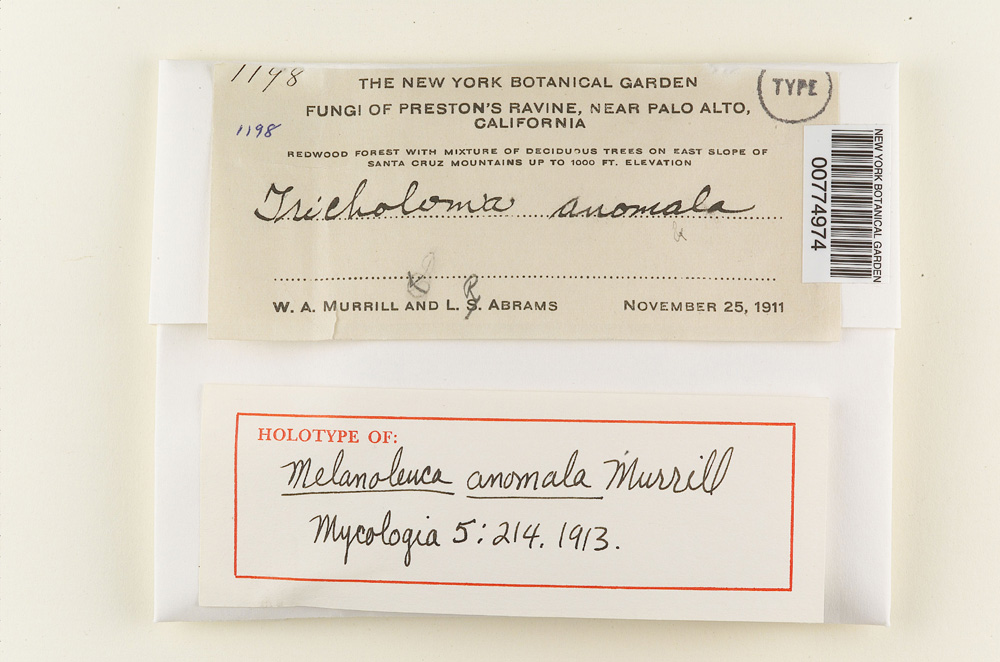 1198
THE NEW YORK BOTANICAL GARDEN
TYPE
FUNGI OF PRESTON'S RAVINE, NEAR PALO ALTO,
CALIFORNIA
1198
REDWOOD FOREST WITH MIXTURE OF DECIDUOUS TREES ON EAST SLOPE OF
SANTA CRUZ MOUNTAINS UP TO 1000 FT. ELEVATION
Tricholoma anomala
W. A. MURRILL AND L. S. ABRAMS NOVEMBER 25, 1911
R
NEW YORK BOTANICAL GARDEN
00774974
HOLOTYPE OF:
Melanoleuca anomala Murrill
Mycologia 5: 214. 1913.